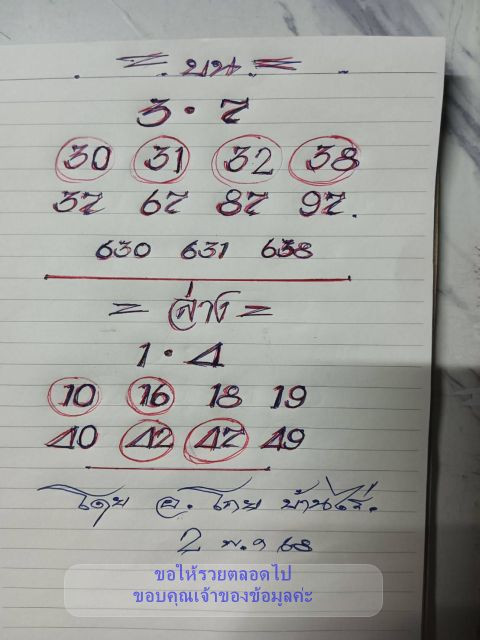 = บน =
3 · 7
30 31 32 38
37 67 87 97.
630 631 638
= ล่าง =
1 · 4
10 16 18 19
40 42 47 49
โดย อ. โกย บ้านไร่.
2 พ.ค 68
ขอให้รวยตลอดไป
ขอบคุณเจ้าของข้อมูลค่ะ